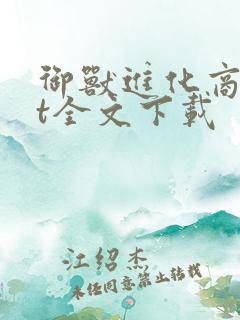 御獸進化商
t全文下載
江紹杰
未经同意禁止转载